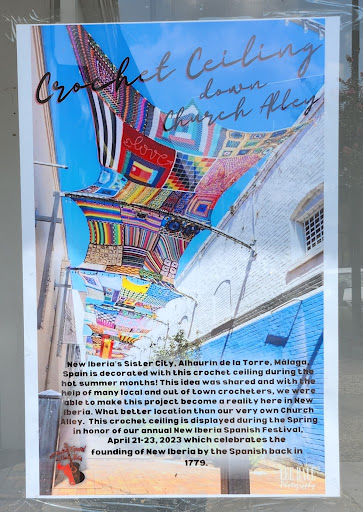 Crochet Ceiling
down
Church Alley
love
New Iberia's Sister City, Alhaurin de la Torre, Málaga,
Spain is decorated with this crochet ceiling during the
hot summer months! This idea was shared and with the
help of many local and out of town crocheters, we were
able to make this project become a reality here in New
Iberia. What better location than our very own Church
Alley. This crochet ceiling is displayed during the Spring
in honor of our annual New Iberia Spanish Festival,
April 21-23, 2023 which celebrates the
founding of New Iberia by the Spanish back in
1779.
Photography